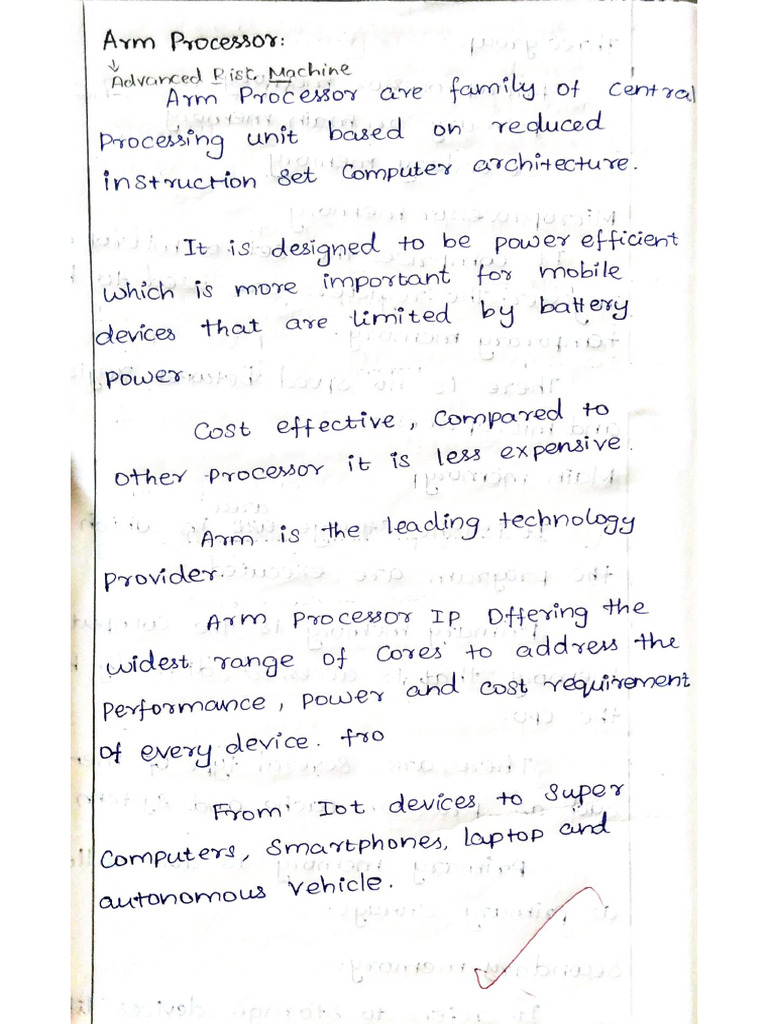 Arm Processor:
↓
Advanced Risk Machine
Arm Processor are family of central
Processing unit based on reduced
instruction set computer architecture.
It is designed to be power efficient
which is more important for mobile
devices that are limited by battery
power.
Cost effective, compared to
other processor it is less expensive.
Arm is the leading technology
provider.
Arm Processor IP Offering the
widest range of cores to address the
performance, power and cost requirement
of every device. fro
From Iot devices to super
computers, smartphones, laptop and
autonomous vehicle.